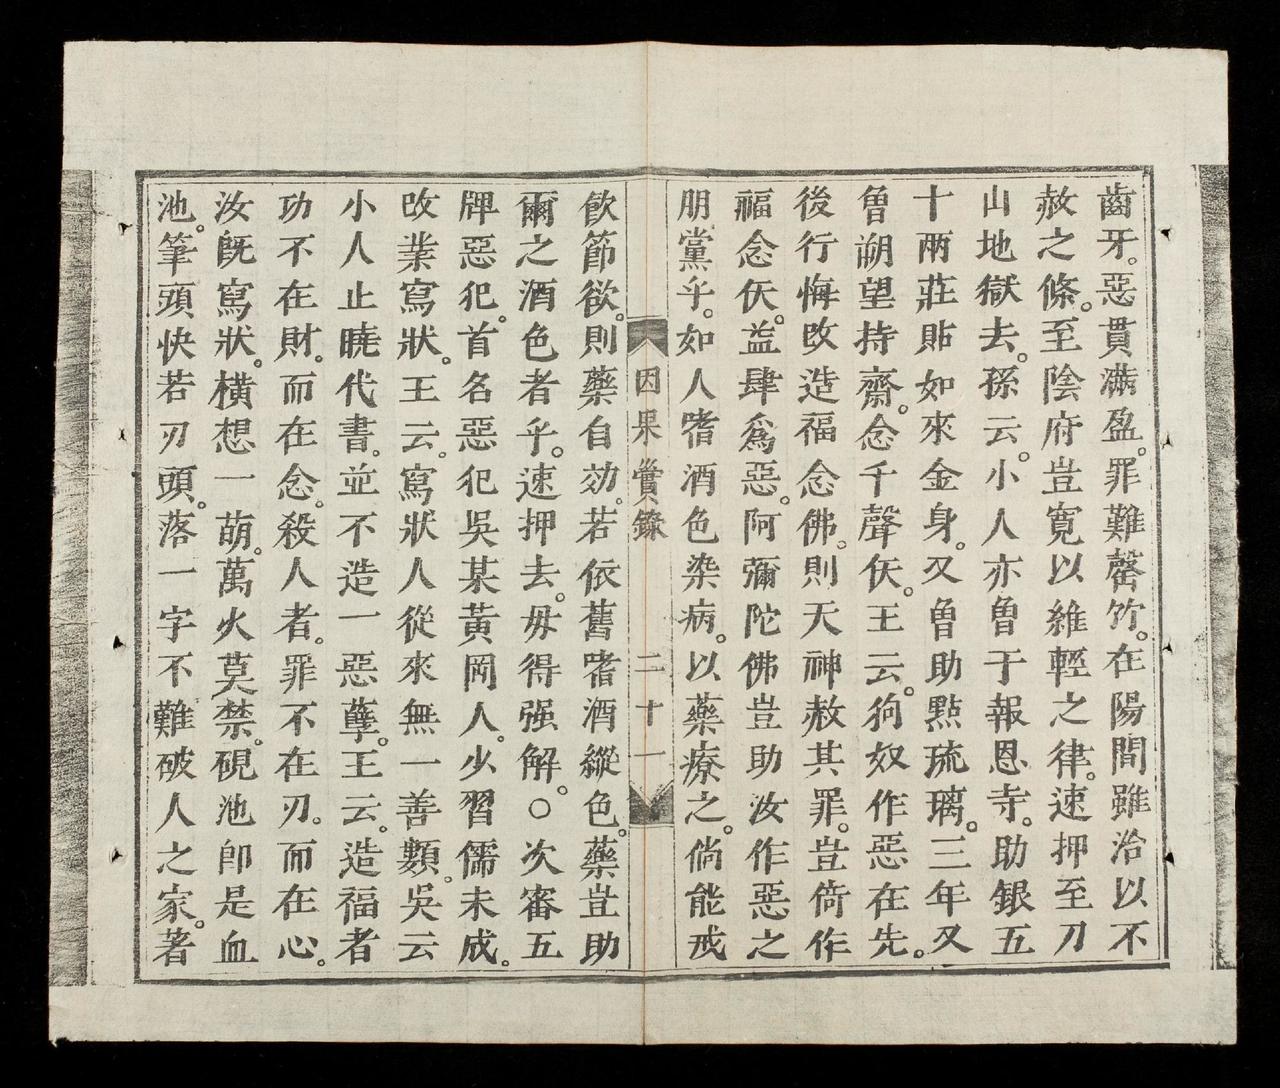 齒牙。惡貫滿盈。罪難罄竹。在陽間雖治以不
赦之條。至陰府豈寬以維輕之律。速押至刀
山地獄去。孫云。小人亦曾于報恩寺。助銀五
十兩莊貼如來金身。又曾助點琉璃。三年又
曾朔望持齋。念千聲仸。王云。狗奴作惡在先。
後行悔改造福念佛。則天神赦其罪。豈倚作
福念仸。益肆爲惡。阿彌陀佛豈助汝作惡之
朋黨乎。如人嗜酒色染病。以藥療之。倘能戒
因果實錄 二十一
飲節欲。則藥自効。若依舊嗜酒縱色。藥豈助
爾之酒色者乎。速押去。毋得强解。○次審五
牌惡犯。首名惡犯吳某黃岡人。少習儒未成。
改業寫狀。王云。寫狀人從來無一善類。吳云
小人止曉代書。並不造一惡孽。王云。造福者
功不在財。而在念。殺人者。罪不在刃。而在心。
汝旣寫狀。橫想一萌。萬火莫禁。硯池卽是血
池。筆頭快若刃頭。落一字不難破人之家。著